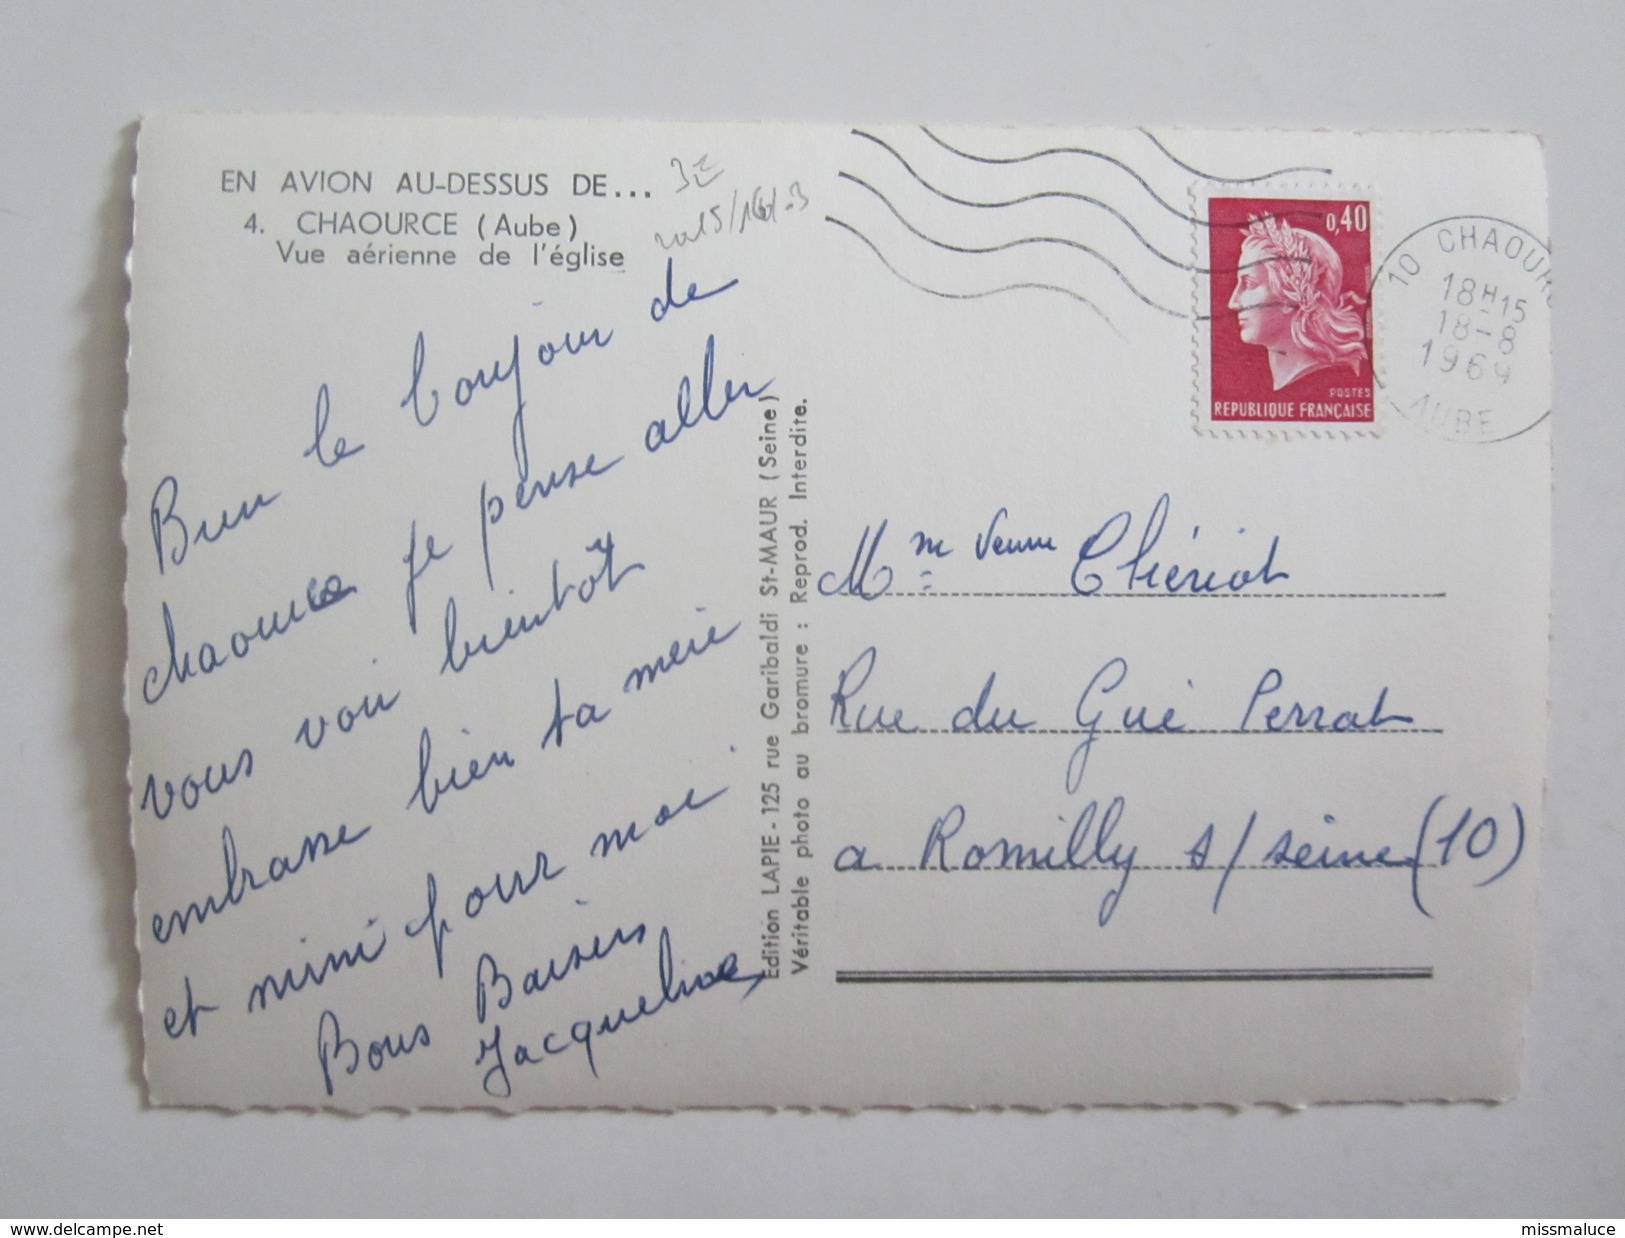 EN AVION AU-DESSUS DE...
4. CHAOURCE (Aube)
Vue aérienne de l'église
Bien le bonjour de
chaource je pense aller
vous voir bientôt
embrasse bien ta mère
et mimi pour moi
Bons Baisers
Jacqueline
Edition LAPIE - 125 rue Garibaldi St-MAUR (Seine)
Véritable photo au bromure : Reprod. Interdite.
0,40
POSTES
REPUBLIQUE FRANÇAISE
10 CHAOURC
18H15
18-8
1969
AUBE
Mme Veuve Thériot
Rue du Gué Perrat
a Romilly s/seine (10)
www.delcampe.net
missmaluce